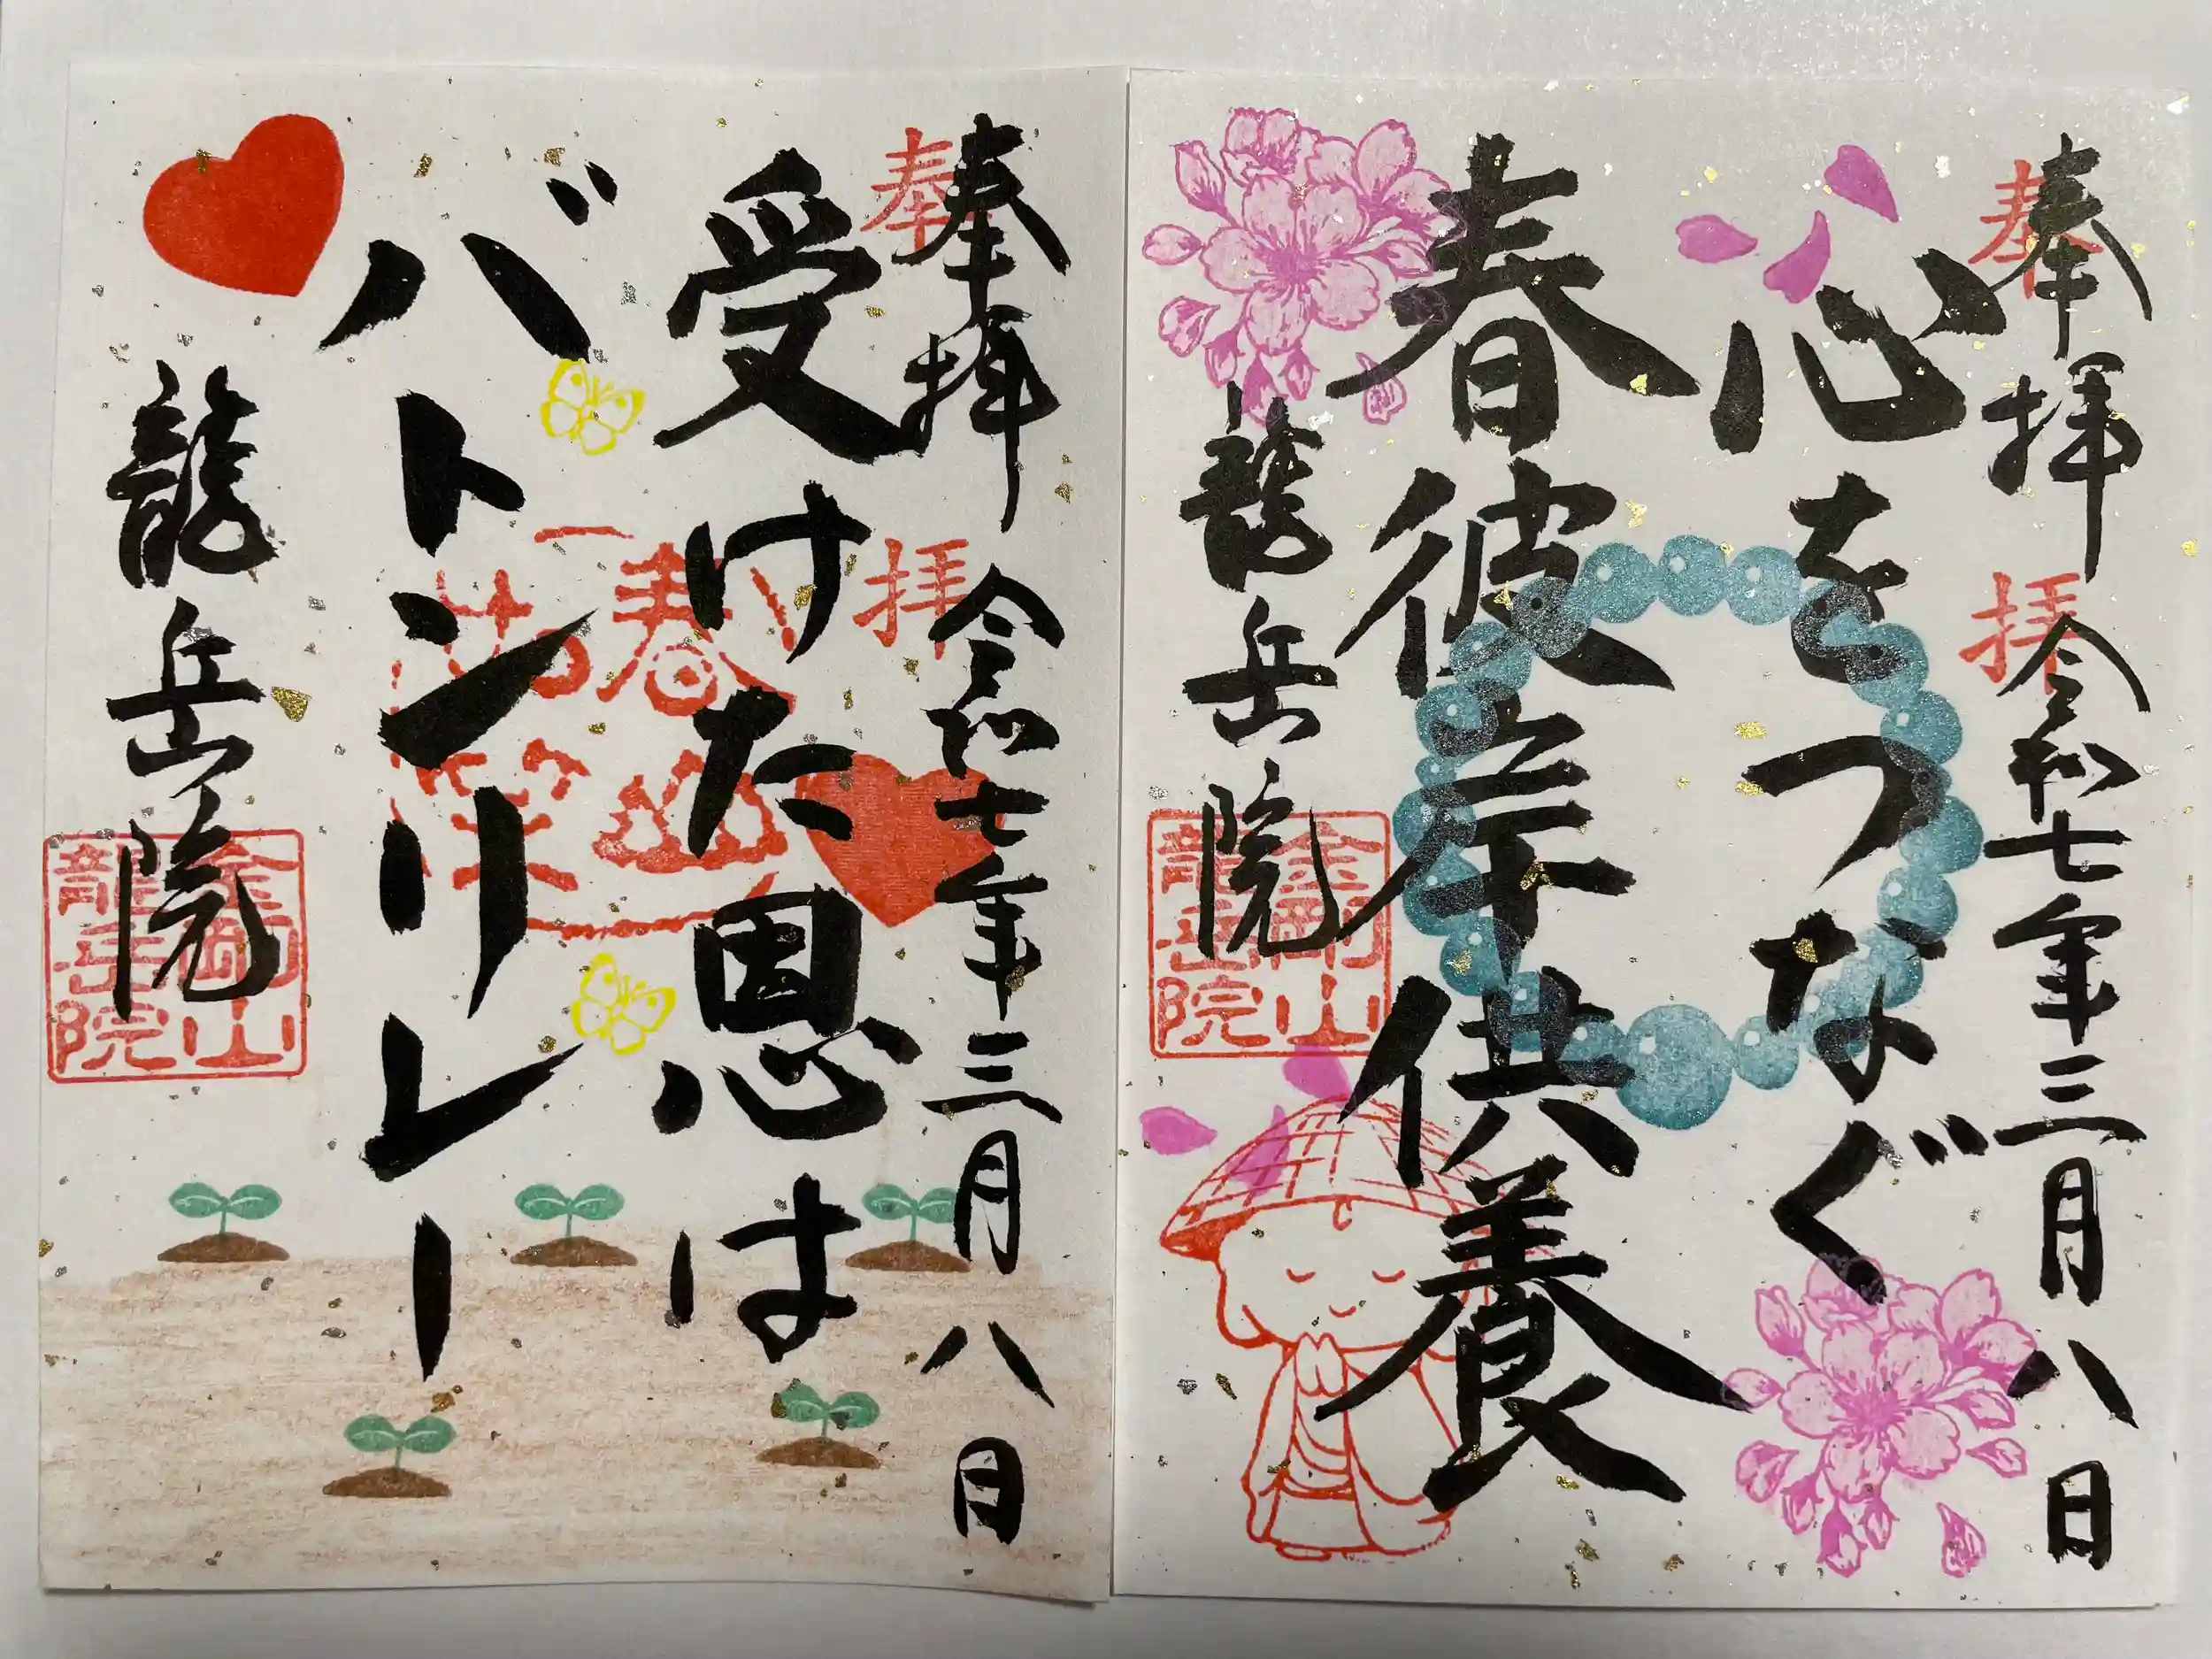 奉拝 令和七年三月八日
奉拝
心をつなぐ
春彼岸供養
龍岳院
金剛山
龍岳院
奉拝 令和七年三月八日
奉拝
受けた恩は
バトンリレー
龍岳院
金剛山
龍岳院